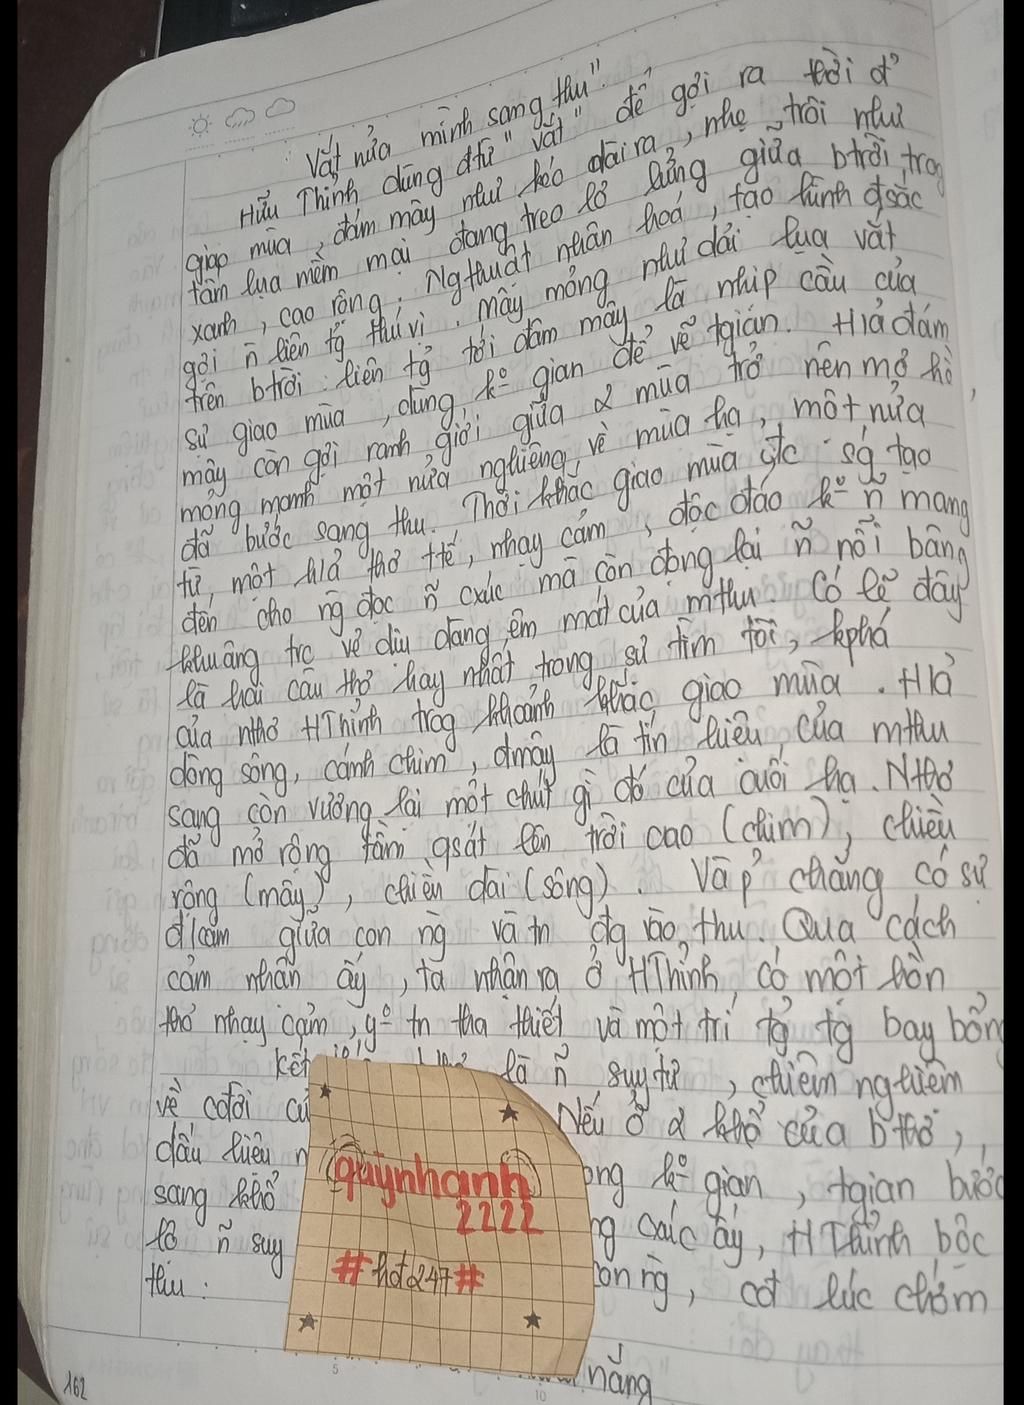 Vắt nửa mình sang thu".
Hữu Thỉnh dùng đtừ "vắt" để gợi ra thời đ'
giao mùa, đám mây như kéo dài ra, nhẹ trôi như
tấm lụa mềm mại đang treo lơ lửng giữa btrời trog
xanh, cao rộng. Ngthuật nhân hoá, tạo hình đsắc
gợi ñ liên tg thú vị. Mây mỏng như dải lụa vắt
trên btrời: liên tg tới đám mây là nhịp cầu của
sự giao mùa, dùng ko gian để vẽ tgian. Hảđám
mây còn gợi ranh giới giữa 2 mùa trở nên mơ hồ,
mỏng manh một nửa nghiêng về mùa hạ, một nửa
đã bước sang thu. Thời khắc giao mùa đc sg tạo
từ một hả thơ ttế, nhạy cảm, độc đáo ko ñ mang
đến cho ng đọc ñ cxúc mà còn đọng lại ñ nỗi bâng
khuâng trc vẻ dịu dàng, êm mát của mthu. Có lẽ đây
là hai câu thơ hay nhất trong sự tìm tòi, kphá
của nthơ HThỉnh trog khoảnh khắc giao mùa. Hả
dòng sông, cánh chim, đmây là tín hiệu của mthu
sang còn vương lại một chút gì đó của cuối hạ. Nthơ
đã mở rộng tầm qsát lên trời cao (chim), chiều
rộng (mây), chiều dài (sông). Và p' chăng có sự
đ/cảm giữa con ng và tn đg vào thu. Qua cách
cảm nhận ấy, ta nhận ra ở HThỉnh có một hồn
thơ nhạy cảm, yo tn tha thiết và một trí tg tg bay bổng
kết là ñ suy tư, chiêm nghiệm
về cđời củ Nếu ở 2 khổ của bthơ,
dấu hiệu n ong ko gian, tgian bước
sang khổ ng cxúc ấy, HThỉnh bộc
lộ ñ suy on ng, cđ lúc chớm
thu:
nắng
quỳnhanh
2222
#hot247#
162